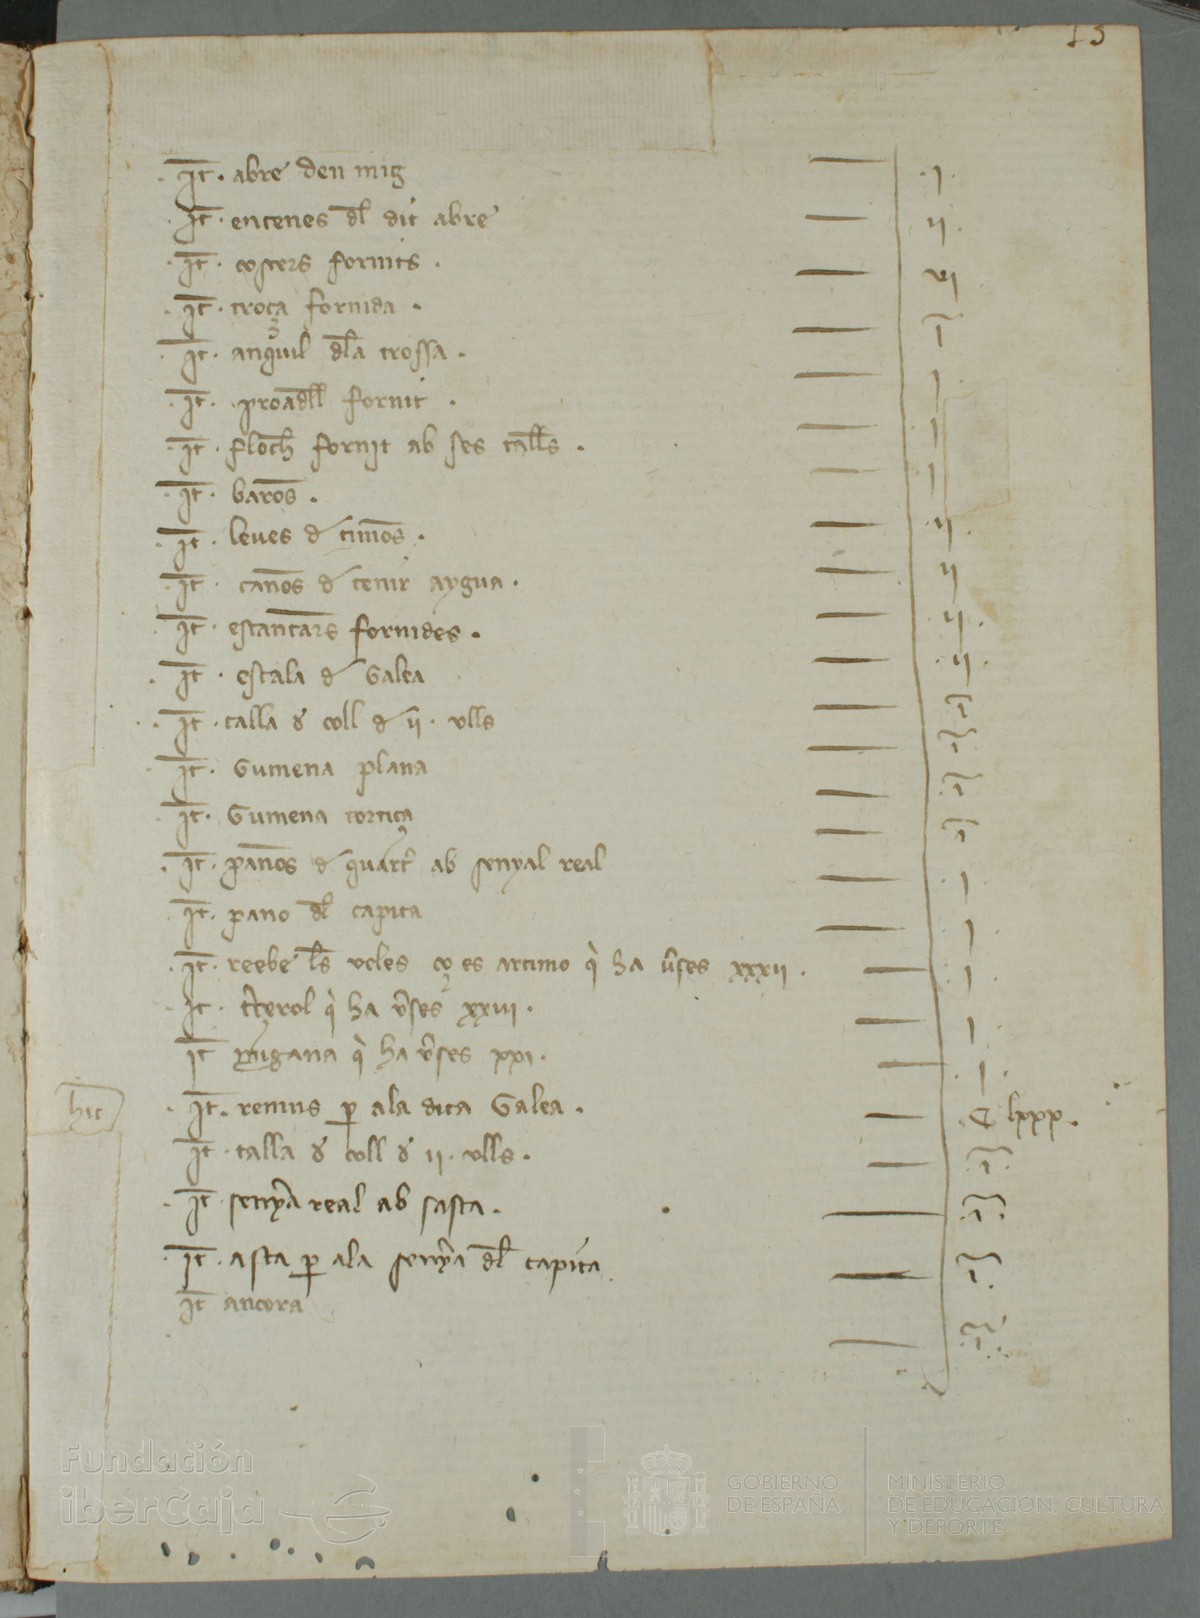 13
It. abre den mig — .j.
It. entenes dl dit abre — ij.
It. costers fornits. — vj.
It. troça fornida. — j
It. anquil dla trossa. — j
It. proadell fornit. — j
It. floch fornit ab ses talls. — j
It. baros. — ij.
It. leves d timos. — ij
It. canos d tenir aygua. — ij.
It. estantars fornides. — .ij.
It. escala d Galea — j
It. talla d coll d ij. ulls — j
It. Gumena plana — j
It. Gumena tortiça — j
It. panos d quart ab senyal real — j
It. pano dl capita — j
It. reebe ls veles ço es artimo q ha vses xxxij. — j
It. terol q ha vses xxvj. — j
It. q ha vses xxj. — j
hit
It. remus p ala dita Galea. — C lxxx.
It. talla d coll d ij. ulls. — j
It. senya real ab sasta. — j
It. asta p ala senya dl capita — j
It ancora — j
Fundación
iberCaja
GOBIERNO
DE ESPAÑA
MINISTERIO
DE EDUCACIÓN, CULTURA
Y DEPORTE